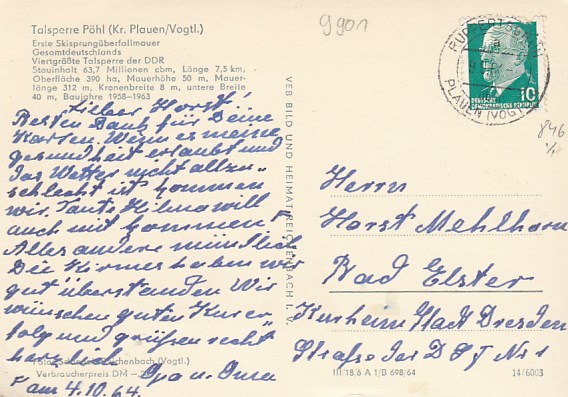 Talsperre Pöhl (Kr. Plauen/Vogtl.)
Erste Skisprungüberfallmauer
Gesamtdeutschlands
Viertgrößte Talsperre der DDR
Stauinhalt 63,7 Millionen cbm, Länge 7,5 km,
Oberfläche 390 ha, Mauerhöhe 50 m, Mauer-
länge 312 m, Kronenbreite 8 m, untere Breite
40 m, Baujahre 1958–1963
Lieber Horst!
Besten Dank für Deine
Karten. Wenn es meine
gesundheit erlaubt und
das Wetter nicht allzu
schlecht ist kommen
wir. Tante Hilma will
auch mit kommen.
Alles andere mündlich
Die Kirmes haben wir
gut überstanden Wir
wünschen guten Kurer-
folg und grüßen recht
herzlich Opa u. Oma
am 4.10.64.
Reichenbach (Vogtl.)
Verbraucherpreis DM
VEB BILD UND HEIMAT REICHENBACH I. V.
9901
PLAUEN (VOGTL)
10
DEUTSCHE
DEMOKRATISCHE REPUBLIK
846
Herrn
Horst Mehlhorn
Bad Elster
Kurheim Stadt Dresden
Straße der D S F Nr 1
III 18/6 A 1/B 698/64
14/6003